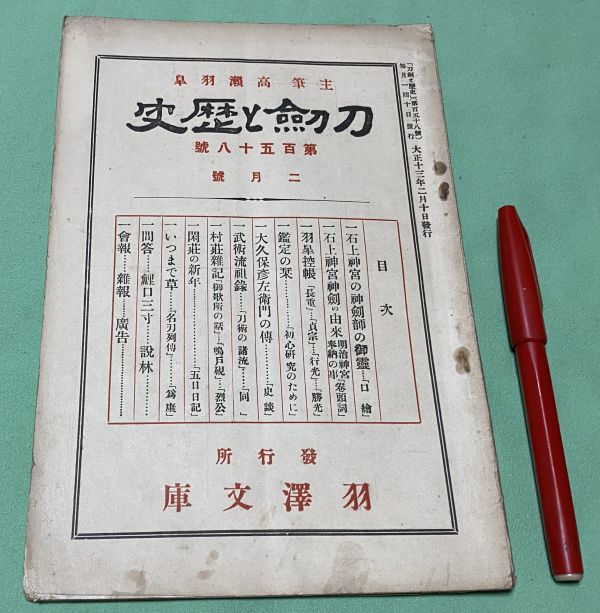 「刀劍と歴史」(第百五十八號)
毎月一回十日發行
大正十三年二月十日發行
主筆高瀬羽皐
刀劍と歴史
第百五十八號
二月號
目次
一石上神宮の神劍師の御靈…「口繪」
一石上神宮神劍の由來 明治神宮奉納の串「卷頭詞」
一羽皐控帳…「長重」…「貞宗」…「行光」…「勝光」
一鑑定の栞…「初心硏究のために」
一大久保彦左衞門の傳…「史談」
一武術流祖錄…「刀術の諸流」…「同」
一村莊雜記「御歌所の話」…「鳴戸硯」…「烈公」
一閑莊の新年…「五日日記」
一いつまで草…「名刃列傳」…「爲康」
一問答…鯉口三寸…說林
一會報…雜報…廣告
發行所
羽澤文庫